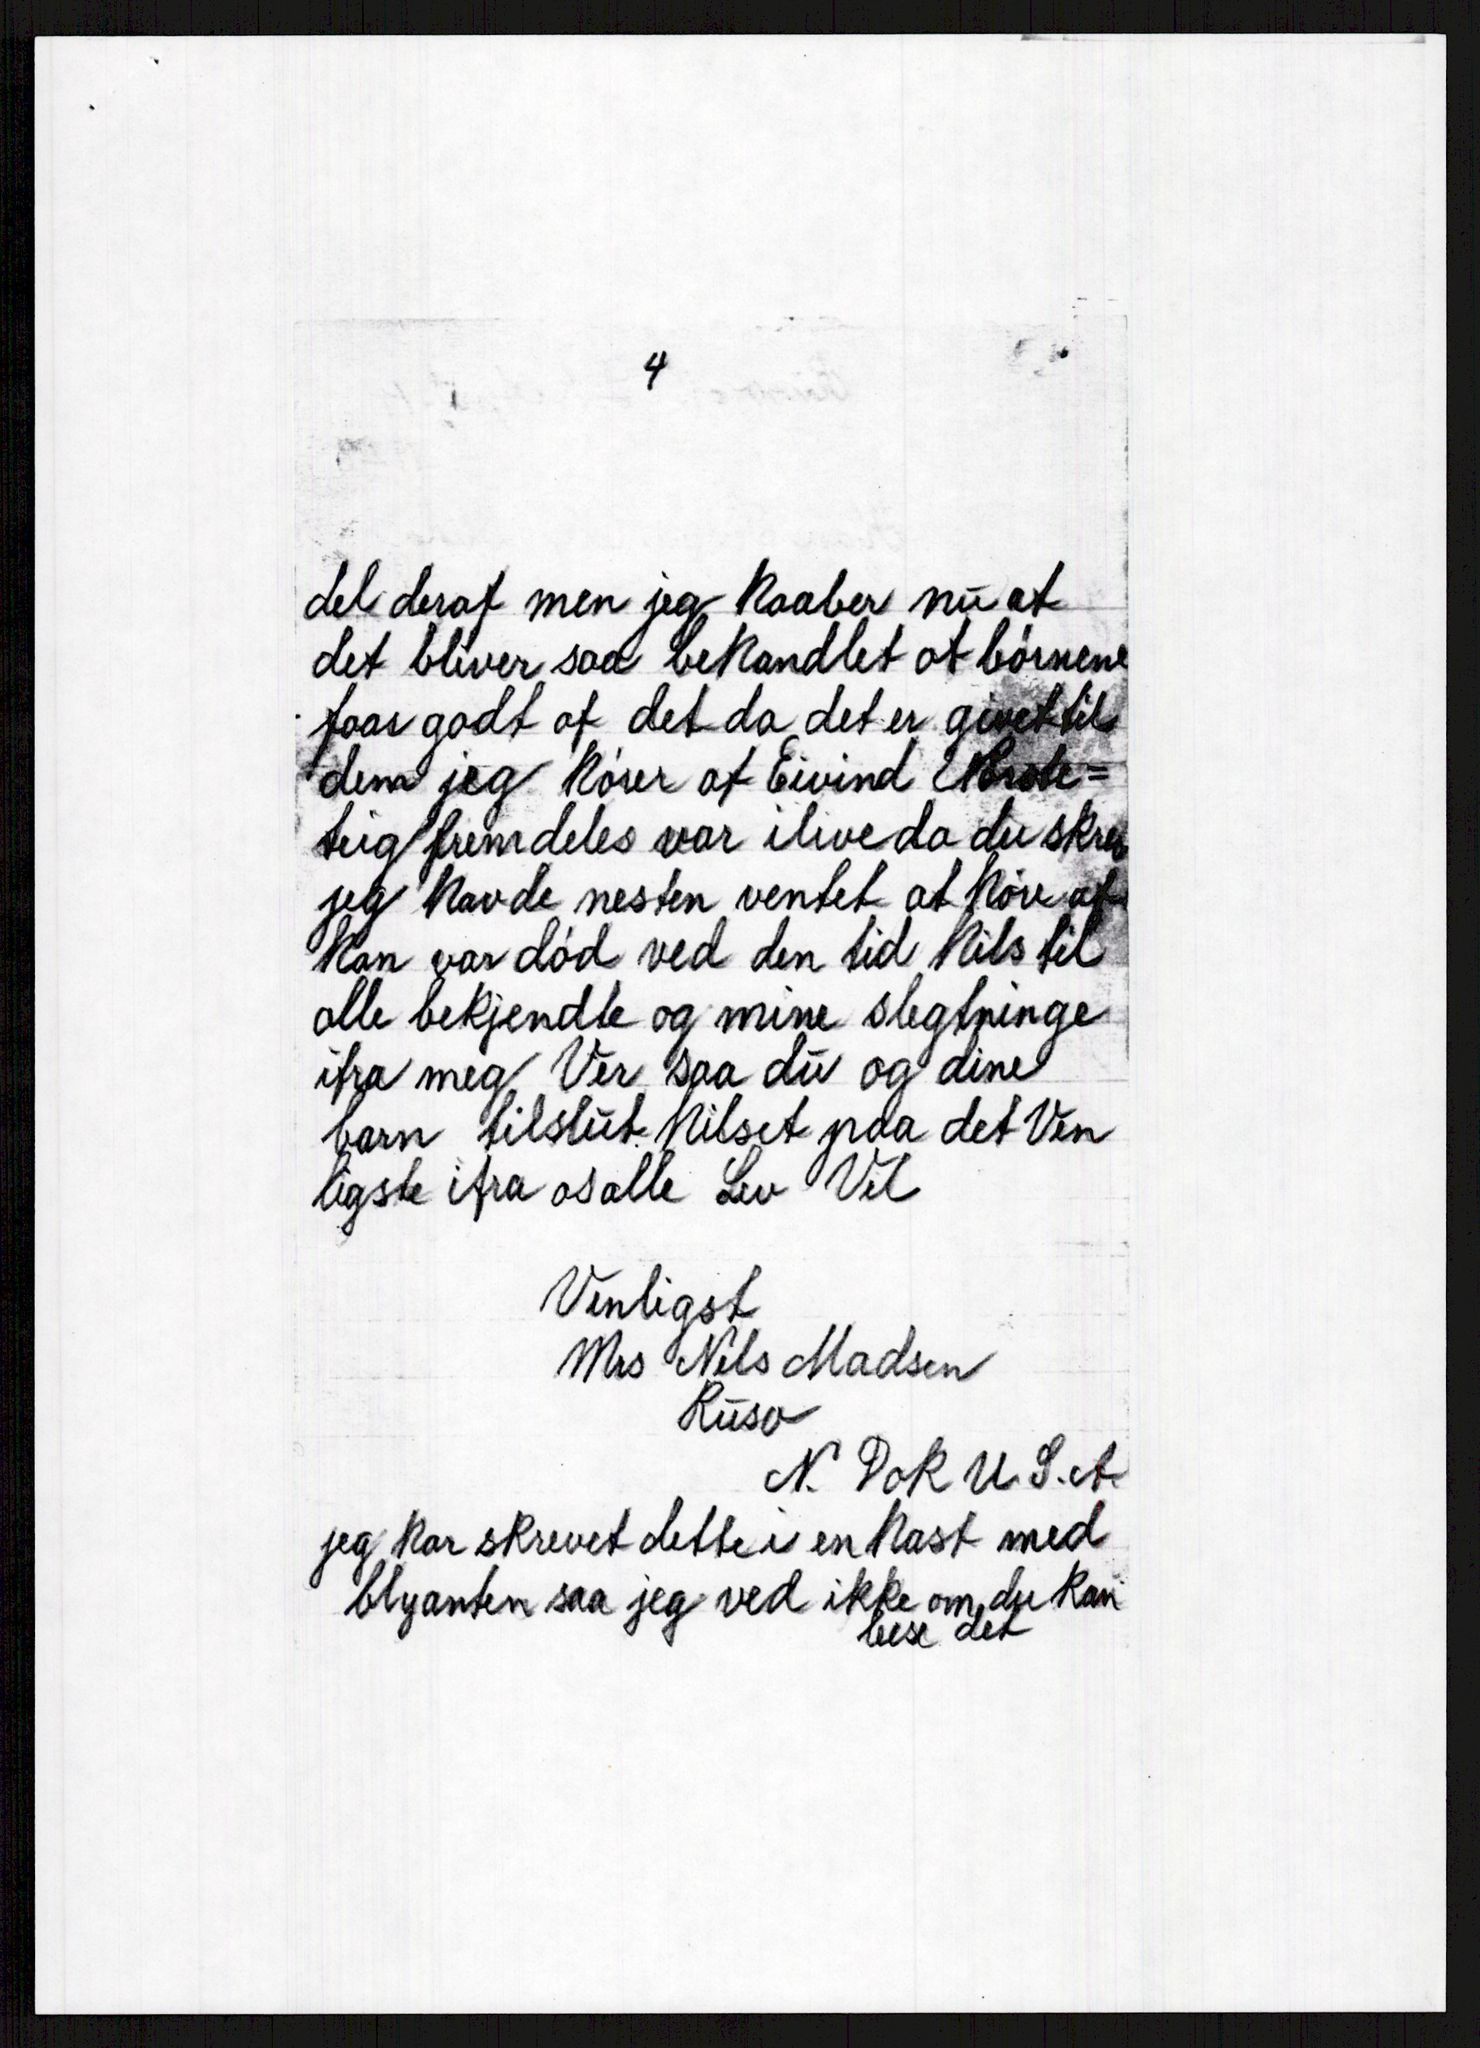 4
del deraf men jeg haaber nū at
det bliver saa behandlet at børnene
faar godt af det da det er givet til
dem jeg hører at Eivind
teig fremdeles var ilive da du skrev
jeg havde nesten ventet at høre at
han var død ved den tid hils til
alle bekjendte og mine slegtninge
ifra meg Ver saa dū og dine
barn tilslūt hilset paa det Ven
ligste ifra os alle Lev Vel
Venligst
Mrs Nils Madsen
Rūso
N. Dok U.S.A.
jeg har skrevet dette i en hast med
blyanten saa jeg ved ikke om du kan
leese det